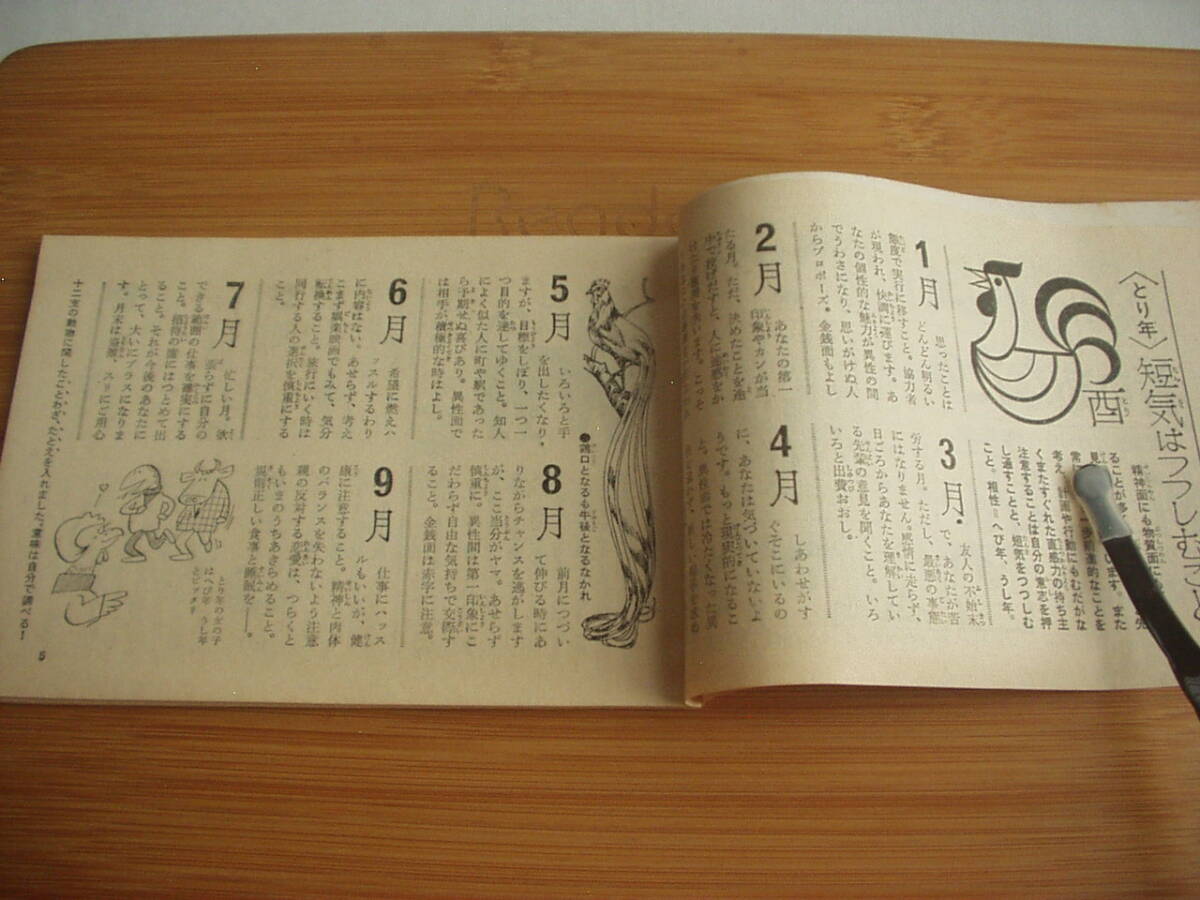 〈とり年〉短気はつつしむ
酉
とり
精神面にも物質面に
ることが多く
います。また
一歩前進的なことを
考え、計画や行動にもむだがな
くまたすぐれた直感力の持ち主
注意することは自分の意志を押
し通すことと、短気をつつしむ
こと。相性=へび年、うし年。
1月
思ったことは
どんどん明るい
態度で実行に移すこと。協力者
が現われ、快調に運びます。あ
なたの個性的な魅力が異性の間
でうわさになり、思いがけぬ人
からプロポーズ。金銭面もよし
2月
あなたの第一
印象やカンが当
たる月。ただ、決めたことを途
中で投げだすと、人に迷惑をか
3月
友人の不始末
で、あなたが苦
労する月。ただし、最悪の事態
にはなりません。感情に走らず、
日ごろからあなたを理解してい
る先輩の意見を聞くこと。いろ
いろと出費おおし。
4月
しあわせがす
ぐそこにいるの
に、あなたは気づいていないよ
うです。もっと現実的になるこ
と。異性面では冷たくなった異
5月
いろいろと手
を出したくなり
ますが、目標をしぼり、一つ一
つ目的を達してゆくこと。知人
によく似た人に町や駅であった
ら予期せぬ喜びあり。異性面で
は相手が積極的な時はよし。
6月
希望に燃えハ
ッスルするわり
に内容はない。あせらず、考え
こまず職業映画でもみて、気分
転換すること。旅行にいく時は
同行する人の選択を慎重にする
こと。
7月
忙しい月。欲
張らずに自分の
できる範囲の仕事を確実にする
こと。招待の席にはつとめて出
ること。それが今後のあなたに
とって、大いにプラスになりま
す。月末は盗難、スリにご用心
●鶏口となるも牛後となるなかれ
8月
前月につづい
て伸びる時にあ
りながらチャンスを逃がします
が、ここ当分がヤマ。あせらず
慎重に。異性間は第一印象にこ
だわらず自由な気持ちで交際す
ること。金銭面は赤字に注意。
9月
仕事にハッス
ルもいいが、健
康に注意すること。精神と肉体
のバランスを失わないよう注意
親の反対する恋愛は、つらくと
もいまのうちあきらめること。
規則正しい食事と睡眠を――。
とり年の女の子
はへび年、うし年
とピッタリ
十二支の動物に関したことわざ、たとえを入れました。意味は自分で調べる!
5